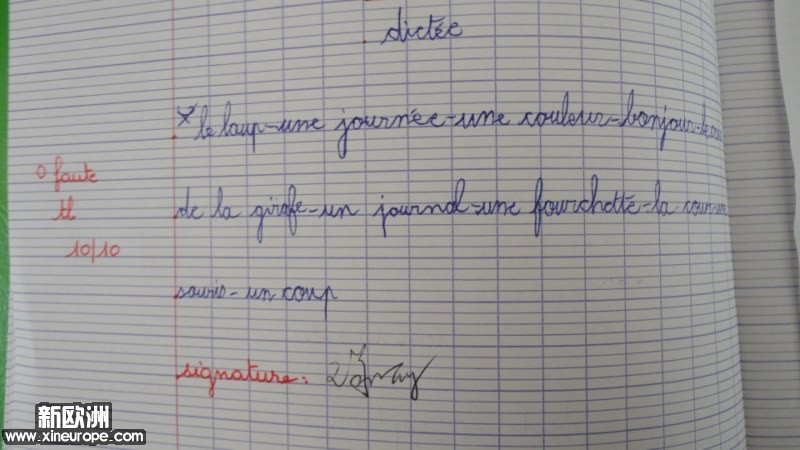 dictée
* le loup-une journée-une couleur-bonjour-le cou
0 faute
de la girafe-un journal-une fourchette-la cour-une
10/10
souris-un coup
signature:
新欧洲
www.xineurope.com